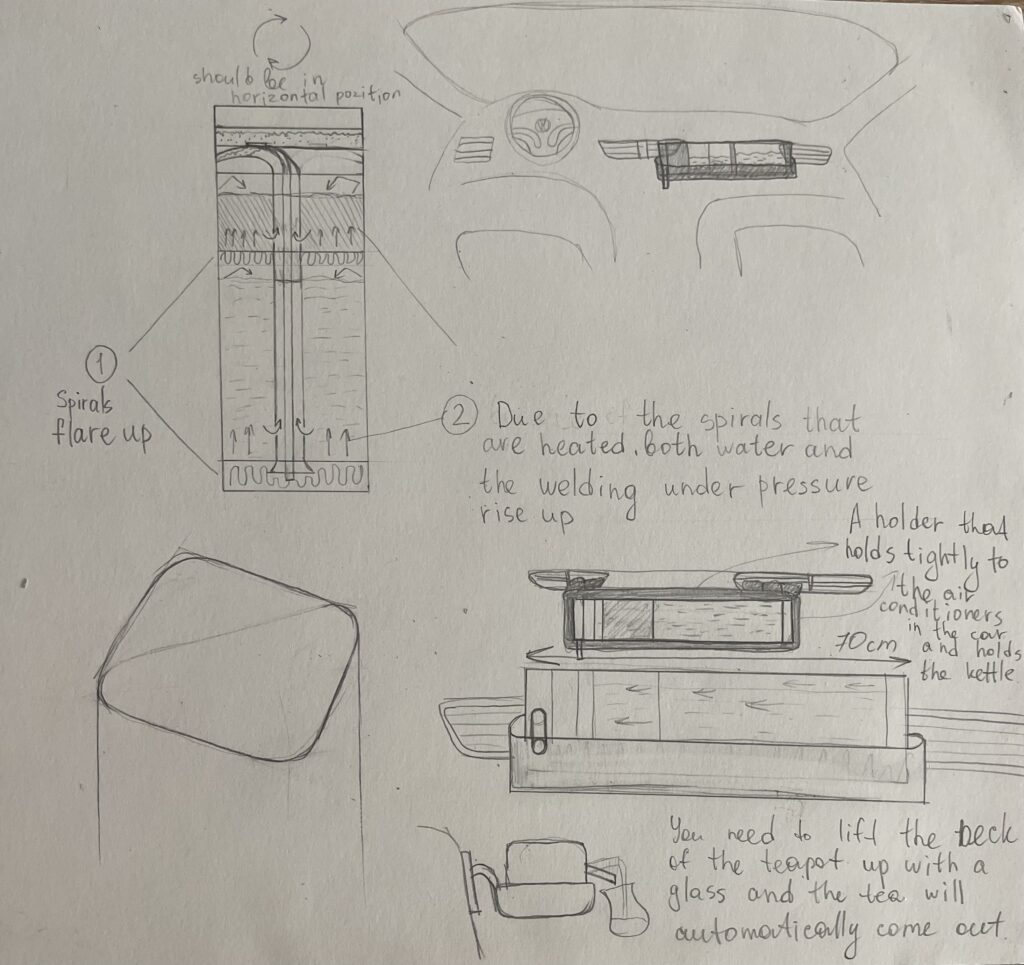 should be in
horizontal position
1
Spirals
flare up
2 Due to the spirals that
are heated, both water and
the welding under pressure
rise up
A holder that
holds tightly to
the air
conditioners
in the car
and holds
the kettle
70cm
You need to lift the beck
of the teapot up with a
glass and the tea will
automatically come out.